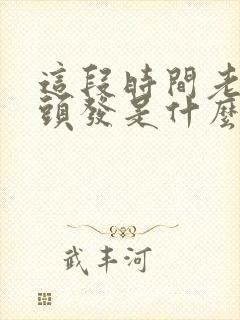 這段時間老
頭發是什麼
武丰河